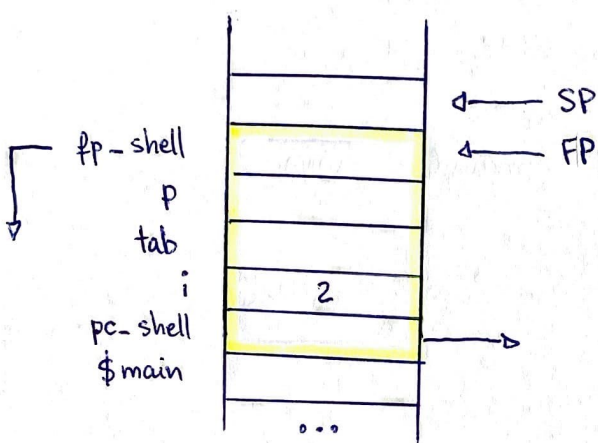 SP
fp_shell
FP
p
tab
i 2
pc_shell
$main
...